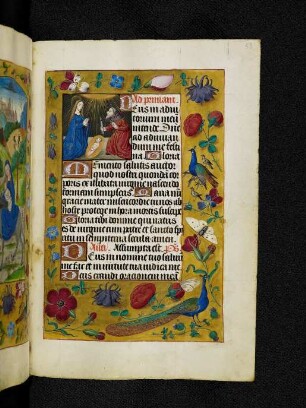 Ad primam.
Eus in adiu
torium meū
intende. Dne
ad adiuuan
dum me festi
na. Gloria
Memento salutis auctor
quod nostri quondā cor
poris ex illibata virgine nascendo
formam sumpseris. Maria ma
ter gratie mater misericordie tu nos ab
hoste protege in hora mortis suscipe
Gloria tibi domine qui natus
es de virgine cum patre et sancto spi
ritu in sempiterna secula amen.
Assumpta est. Ps.
Deus in nomine tuo saluū
me fac et in virtute tua iudica me
Deus exaudi orationem meā